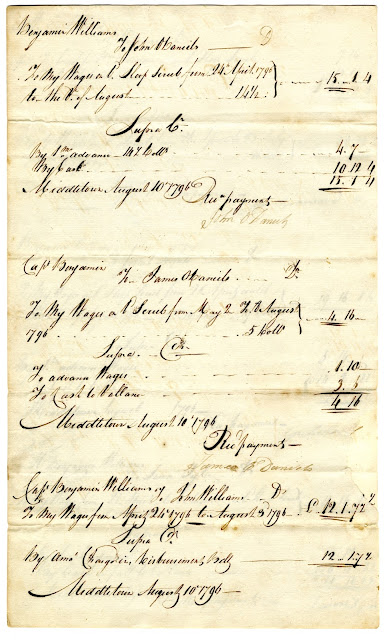 Benjamin Williams
To John O Daniels — D
To My Wages a b. Sloop Scrub from 24th April 1796
to the of August 14½ 15 1 4
Supra Cr
By advance 14½ Doll 4. 7
By Cash 10 12 4
15. 1 4
Middletown August 10th 1796
Recd payment
John O Daniels
Capt Benjamin To James O Daniels Dr
To My Wages a b Scrub from May 2 To August
1796 5 Doll 4 16
Supra Cr
To advann Wages 1. 10
To Cash to Ballance 3. 6
4 16
Middletown August 10th 1796
Recd payment
James O Daniels
Capt Benjamin Williams To John Williams Dr
To My Wages from April 24th 1796 to August 8th 1796 £ 12. 1. 7½
Supra Cr
By Amt Chargd in Disbursement Bill 12 1. 7½
Middletown August 10th 1796